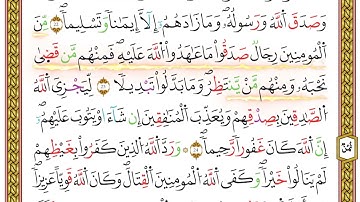 وَصَدَقَ ٱللَّهُ وَرَسُولُهُۥ وَمَا زَادَهُمْ إِلَّآ إِيمَٰنًا وَتَسْلِيمًا ۝٢٢ مِّنَ
ٱلْمُؤْمِنِينَ رِجَالٌ صَدَقُوا۟ مَا عَٰهَدُوا۟ ٱللَّهَ عَلَيْهِ فَمِنْهُم مَّن قَضَىٰ
نَحْبَهُۥ وَمِنْهُم مَّن يَنتَظِرُ وَمَا بَدَّلُوا۟ تَبْدِيلًا ۝٢٣ لِّيَجْزِىَ ٱللَّهُ
ٱلصَّٰدِقِينَ بِصِدْقِهِمْ وَيُعَذِّبَ ٱلْمُنَٰفِقِينَ إِن شَآءَ أَوْ يَتُوبَ عَلَيْهِمْ
إِنَّ ٱللَّهَ كَانَ غَفُورًا رَّحِيمًا ۝٢٤ وَرَدَّ ٱللَّهُ ٱلَّذِينَ كَفَرُوا۟ بِغَيْظِهِمْ
لَمْ يَنَالُوا۟ خَيْرًا وَكَفَى ٱللَّهُ ٱلْمُؤْمِنِينَ ٱلْقِتَالَ وَكَانَ ٱللَّهُ قَوِيًّا عَزِيزًا